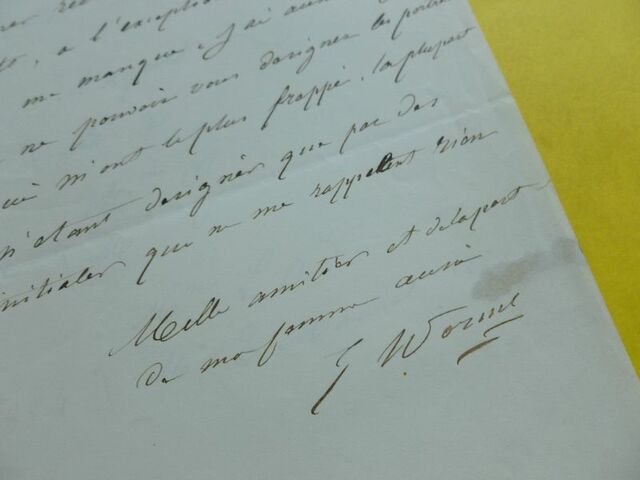 , à l'exception
me manque. J'ai
ne pouvoir vous désigner les
qui m'ont le plus frappé, la plupart
n'étant désignér que par des
initialer que ne me rappelent rien
Mille amitiér et de la part
de ma femme aussi
G Worms